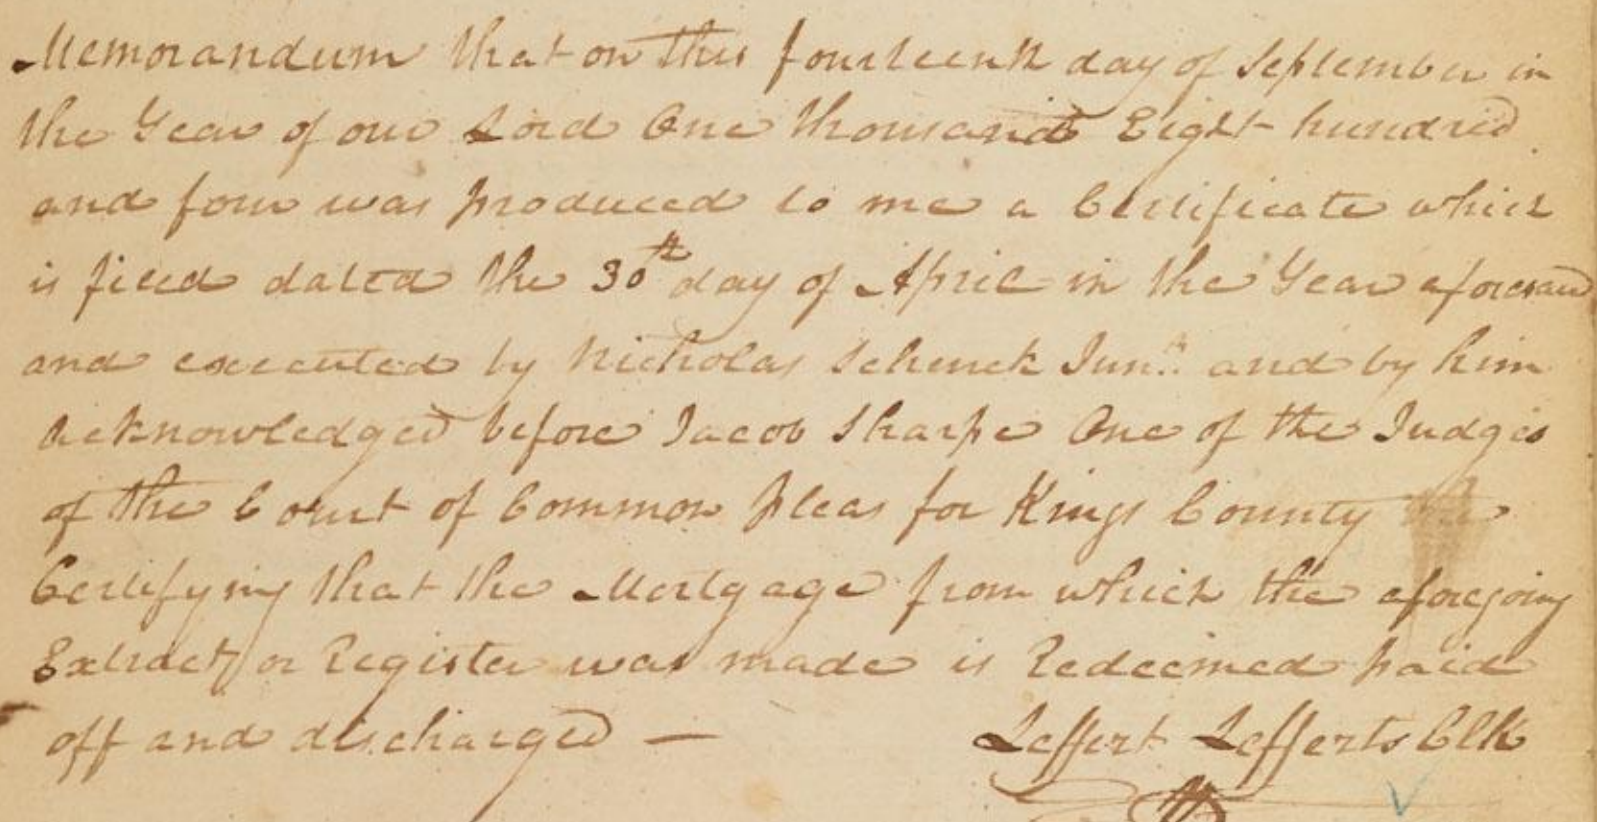 Memorandum that on this fourteenth day of September in
the Year of our Lord One thousand Eight hundred
and four was produced to me a Certificate which
is filed dated the 30th day of April in the Year aforesaid
and executed by Nicholas Schenck Junr. and by him
acknowledged before Jacob Sharpe One of the Judges
of the Court of Common pleas for Kings County
Certifying that the Mortgage from which the aforegoing
Extract or Register was made is Redeemed paid
off and discharged —
Leffert Lefferts Clk